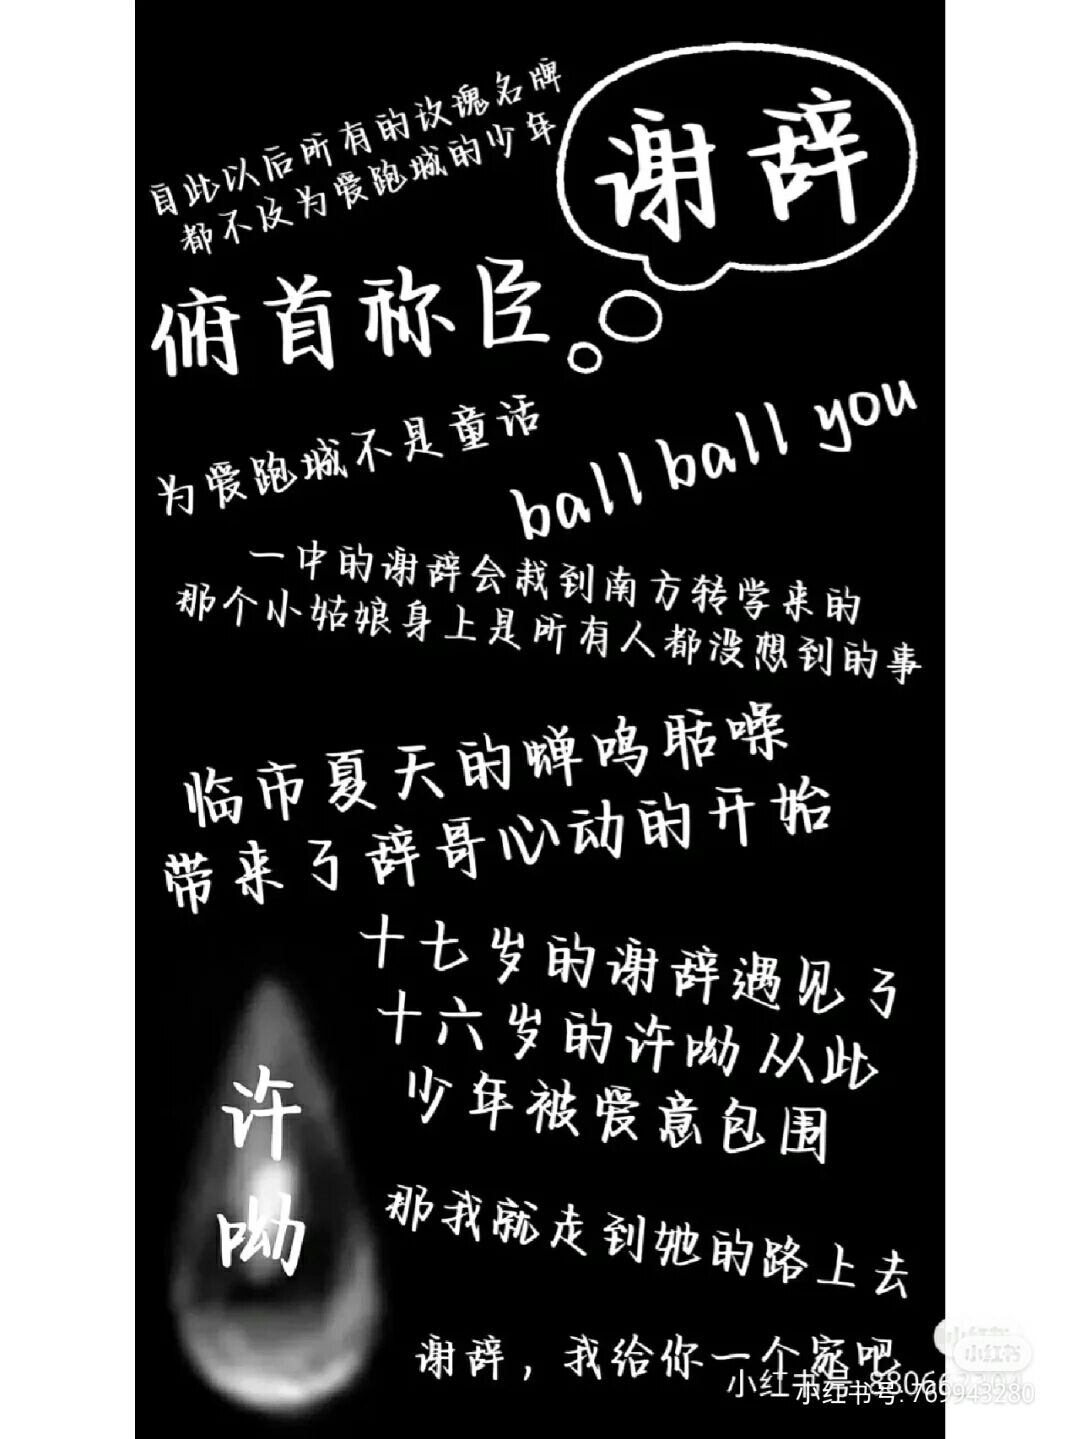 谢辞
自此以后所有的玫瑰名牌
都不及为爱跑城的少年
俯首称臣
为爱跑城不是童话
ball ball you
一中的谢辞会栽到南方转学来的
那个小姑娘身上是所有人都没想到的事
临市夏天的蝉鸣聒噪
带来了辞哥心动的开始
十七岁的谢辞遇见了
十六岁的许呦从此
少年被爱意包围
许呦
那我就走到她的路上去
谢辞，我给你一个家吧
小红书
小红书号
小红书
小红书号: 769943280